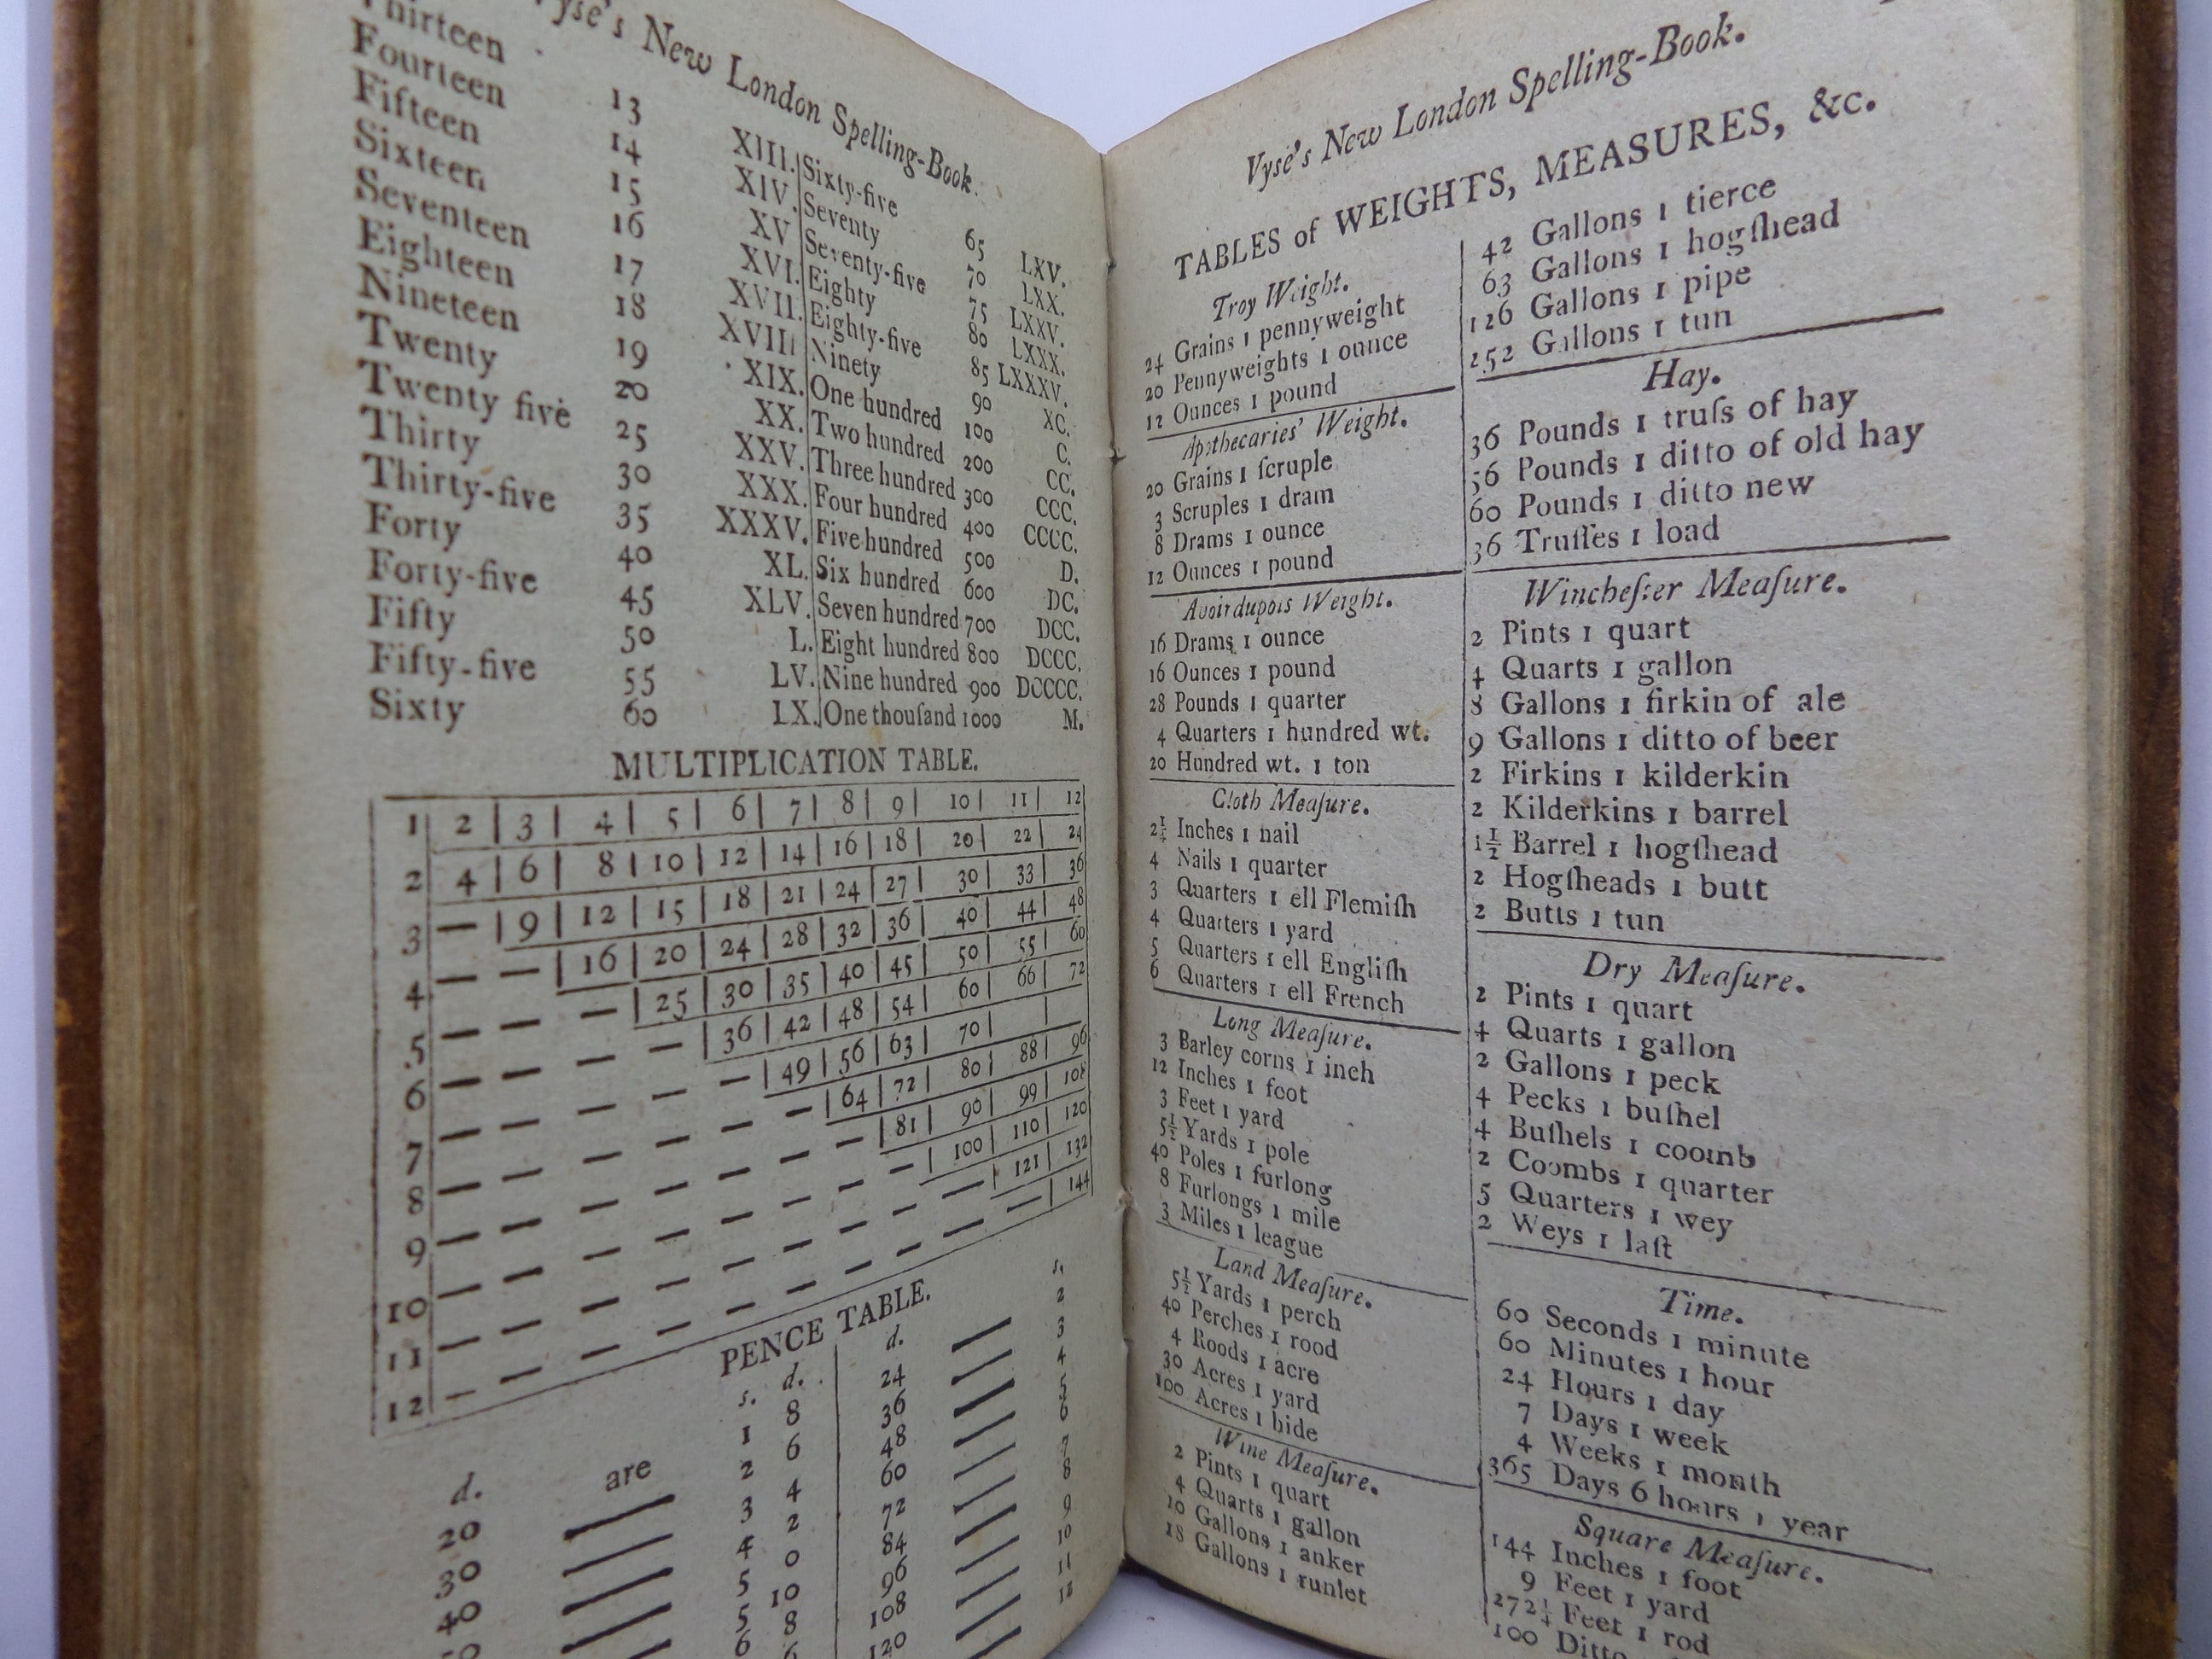 Vyse's New London Spelling-Book.
Thirteen 13 XIII.
Fourteen 14 XIV.
Fifteen 15 XV
Sixteen 16 XVI.
Seventeen 17 XVII.
Eighteen 18 XVIII
Nineteen 19 XIX.
Twenty 20 XX.
Twenty five 25 XXV.
Thirty 30 XXX.
Thirty-five 35 XXXV.
Forty 40 XL.
Forty-five 45 XLV.
Fifty 50 L.
Fifty-five 55 LV.
Sixty 60 LX.
Sixty-five 65 LXV.
Seventy 70 LXX.
Seventy-five 75 LXXV.
Eighty 80 LXXX.
Eighty-five 85 LXXXV.
Ninety 90 XC.
One hundred 100 C.
Two hundred 200 CC.
Three hundred 300 CCC.
Four hundred 400 CCCC.
Five hundred 500 D.
Six hundred 600 DC.
Seven hundred 700 DCC.
Eight hundred 800 DCCC.
Nine hundred 900 DCCCC.
One thouſand 1000 M.
MULTIPLICATION TABLE.
1 2 3 4 5 6 7 8 9 10 11 12
2 4 6 8 10 12 14 16 18 20 22 24
3 — 9 12 15 18 21 24 27 30 33 36
4 — — 16 20 24 28 32 36 40 44 48
5 — — — 25 30 35 40 45 50 55 60
6 — — — — 36 42 48 54 60 66 72
7 — — — — — 49 56 63 70
8 — — — — — — 64 72 80 88 96
9 — — — — — — — 81 90 99 108
10 — — — — — — — — 100 110 120
11 — — — — — — — — — 121 132
12 — — — — — — — — — — 144
PENCE TABLE.
d. s. d. d. s.
20 are 1 8 24 — 2
30 — 2 6 36 — 3
40 — 3 4 48 — 4
50 — 4 2 60 — 5
5 0 72 — 6
5 10 84 — 7
6 8 96 — 8
108 — 9
120 — 10
11
12
Vyse's New London Spelling-Book.
TABLES of WEIGHTS, MEASURES, &c.
Troy Weight.
24 Grains 1 pennyweight
20 Pennyweights 1 ounce
12 Ounces 1 pound
Apothecaries' Weight.
20 Grains 1 ſcruple
3 Scruples 1 dram
8 Drams 1 ounce
12 Ounces 1 pound
Avoirdupois Weight.
16 Drams 1 ounce
16 Ounces 1 pound
28 Pounds 1 quarter
4 Quarters 1 hundred wt.
20 Hundred wt. 1 ton
Cloth Meaſure.
2¼ Inches 1 nail
4 Nails 1 quarter
3 Quarters 1 ell Flemiſh
4 Quarters 1 yard
5 Quarters 1 ell Engliſh
6 Quarters 1 ell French
Long Meaſure.
3 Barley corns 1 inch
12 Inches 1 foot
3 Feet 1 yard
5½ Yards 1 pole
40 Poles 1 furlong
8 Furlongs 1 mile
3 Miles 1 league
Land Meaſure.
5½ Yards 1 perch
40 Perches 1 rood
4 Roods 1 acre
30 Acres 1 yard
100 Acres 1 hide
Wine Meaſure.
2 Pints 1 quart
4 Quarts 1 gallon
10 Gallons 1 anker
18 Gallons 1 runlet
42 Gallons 1 tierce
63 Gallons 1 hogſhead
126 Gallons 1 pipe
252 Gallons 1 tun
Hay.
36 Pounds 1 truſs of hay
56 Pounds 1 ditto of old hay
60 Pounds 1 ditto new
36 Truſſes 1 load
Wincheſter Meaſure.
2 Pints 1 quart
4 Quarts 1 gallon
8 Gallons 1 firkin of ale
9 Gallons 1 ditto of beer
2 Firkins 1 kilderkin
2 Kilderkins 1 barrel
1½ Barrel 1 hogſhead
2 Hogſheads 1 butt
2 Butts 1 tun
Dry Meaſure.
2 Pints 1 quart
4 Quarts 1 gallon
2 Gallons 1 peck
4 Pecks 1 buſhel
4 Buſhels 1 coomb
2 Coombs 1 quarter
5 Quarters 1 wey
2 Weys 1 laſt
Time.
60 Seconds 1 minute
60 Minutes 1 hour
24 Hours 1 day
7 Days 1 week
4 Weeks 1 month
365 Days 6 hours 1 year
Square Meaſure.
144 Inches 1 foot
9 Feet 1 yard
272¼ Feet 1 rod
100 Ditto